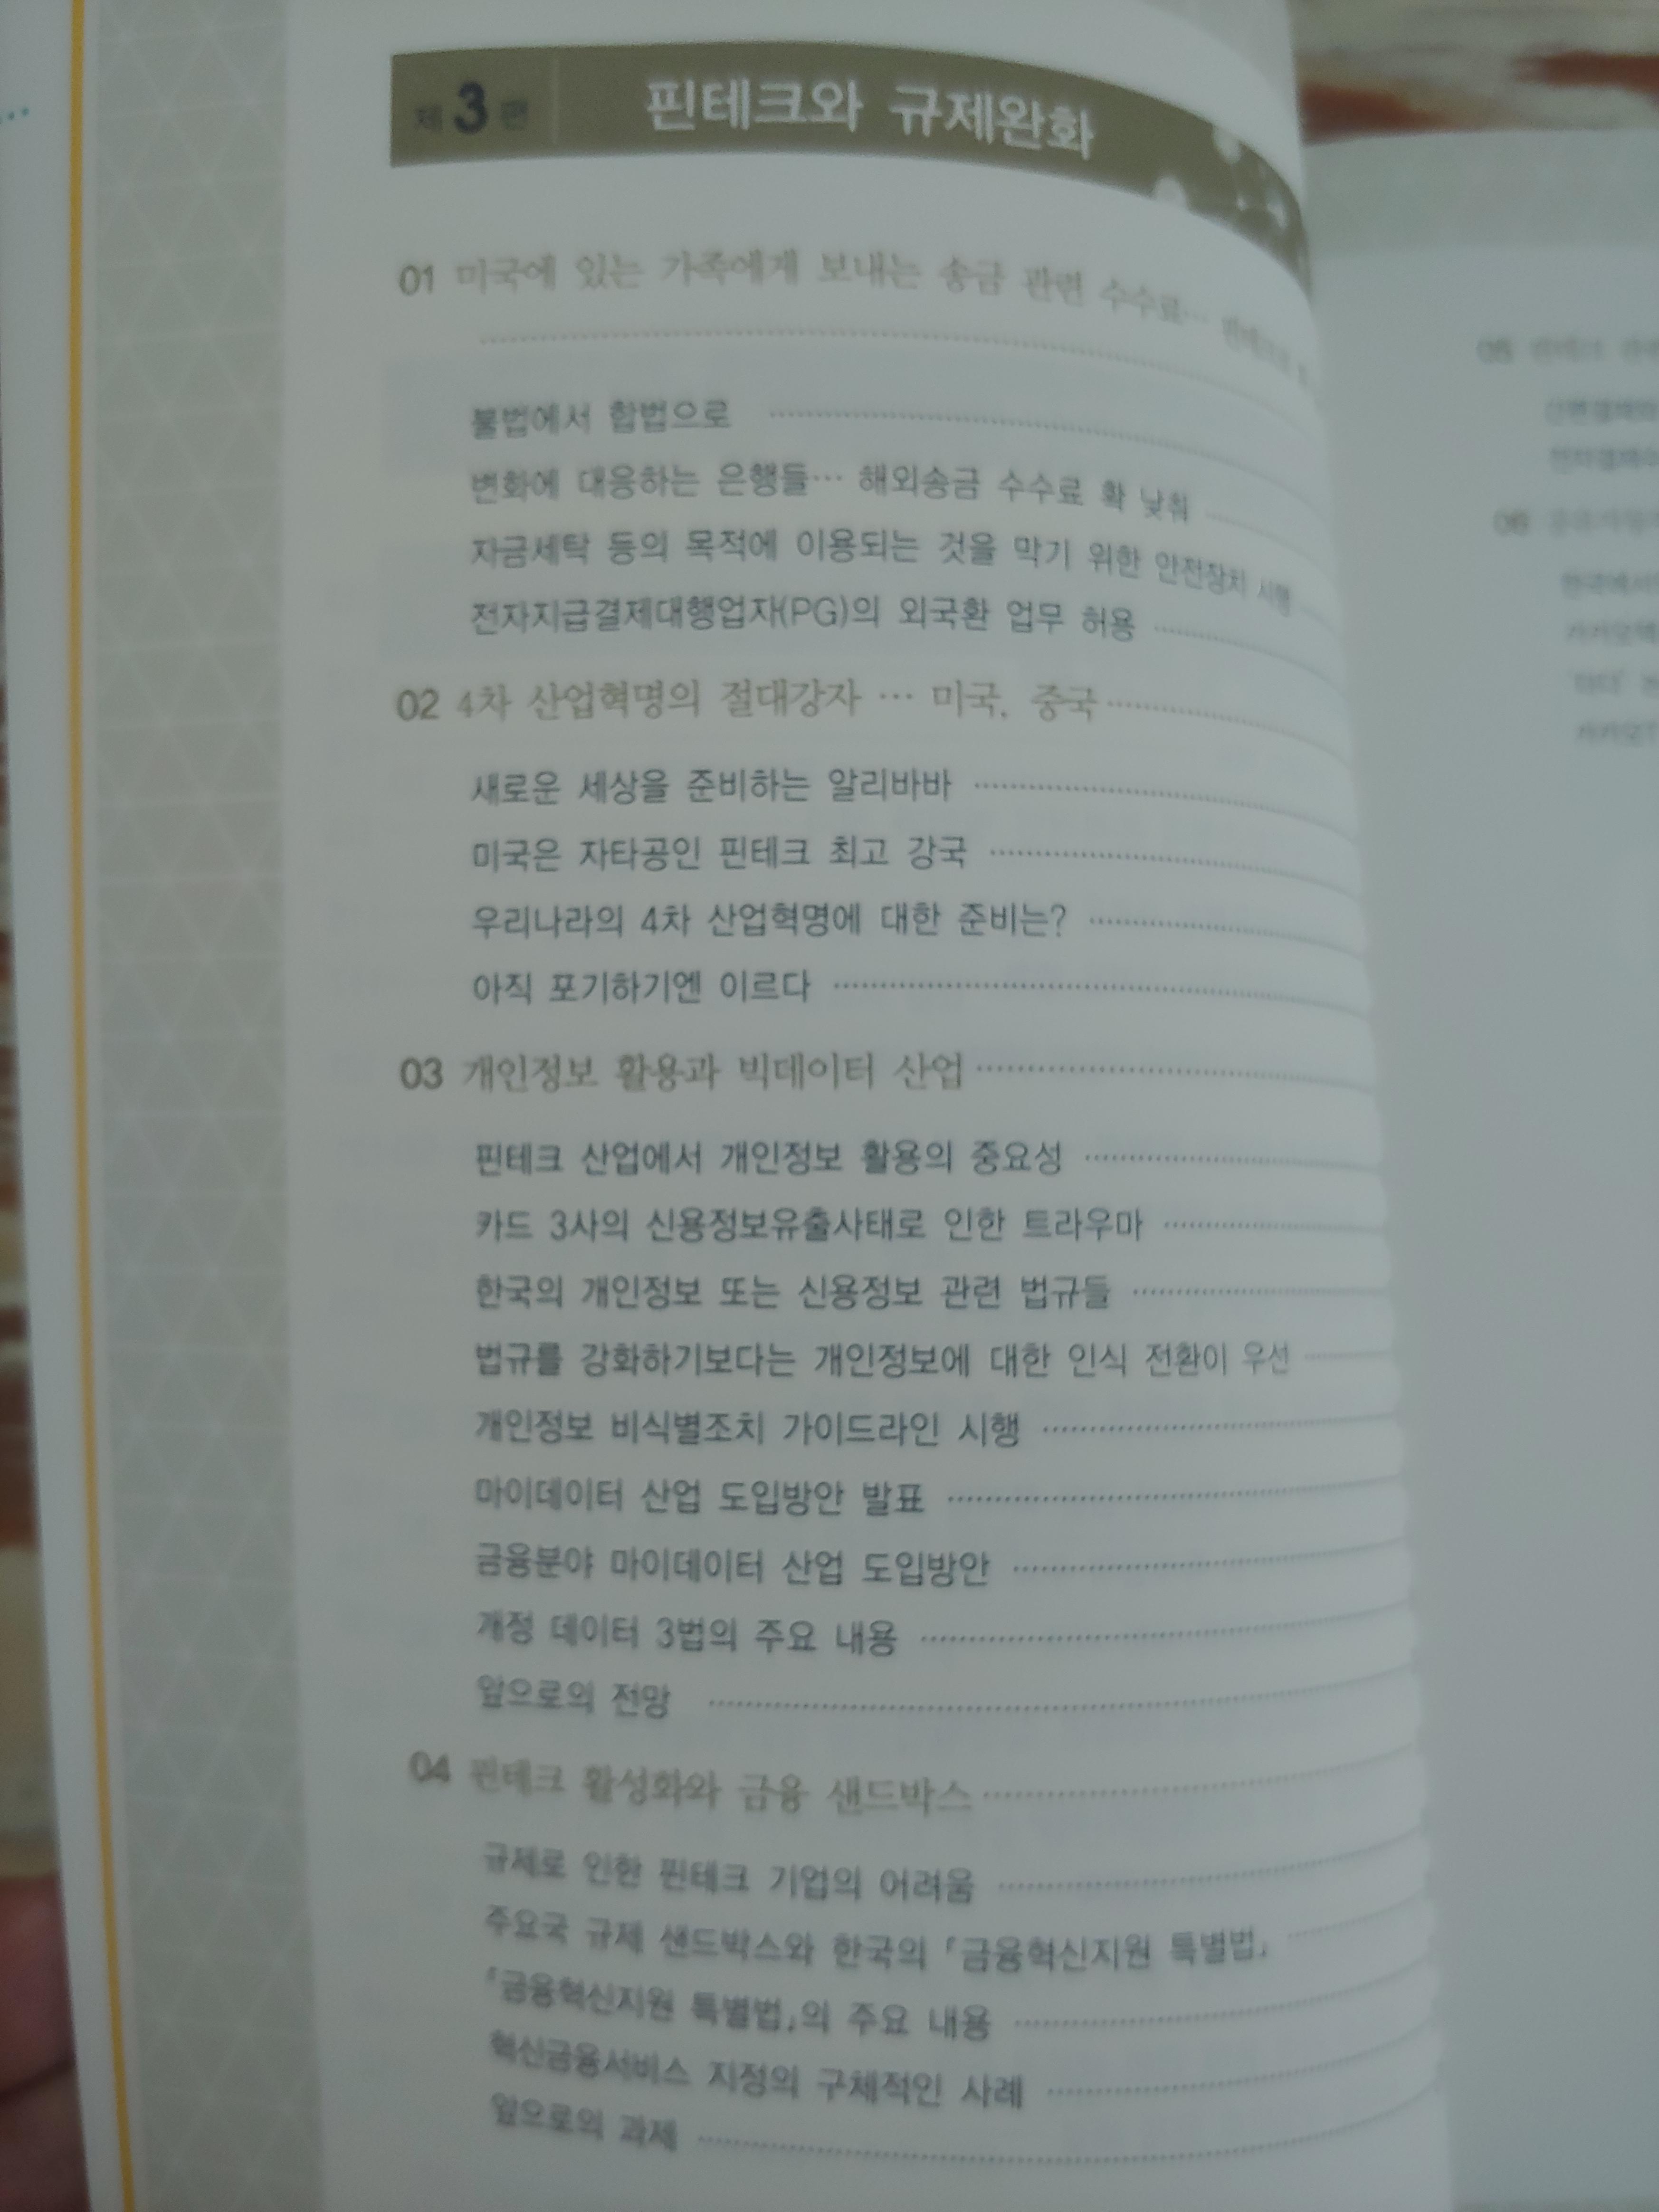 제3편 핀테크와 규제완화
01 미국에 있는 가족에게 보내는 송금 관련 수수료…
불법에서 합법으로
변화에 대응하는 은행들… 해외송금 수수료 확 낮춰
자금세탁 등의 목적에 이용되는 것을 막기 위한 안전장치 시행
전자지급결제대행업자(PG)의 외국환 업무 허용
02 4차 산업혁명의 절대강자 … 미국, 중국
새로운 세상을 준비하는 알리바바
미국은 자타공인 핀테크 최고 강국
우리나라의 4차 산업혁명에 대한 준비는?
아직 포기하기엔 이르다
03 개인정보 활용과 빅데이터 산업
핀테크 산업에서 개인정보 활용의 중요성
카드 3사의 신용정보유출사태로 인한 트라우마
한국의 개인정보 또는 신용정보 관련 법규들
법규를 강화하기보다는 개인정보에 대한 인식 전환이 우선
개인정보 비식별조치 가이드라인 시행
마이데이터 산업 도입방안 발표
금융분야 마이데이터 산업 도입방안
개정 데이터 3법의 주요 내용
앞으로의 전망
04 핀테크 활성화와 금융 샌드박스
규제로 인한 핀테크 기업의 어려움
주요국 규제 샌드박스와 한국의 「금융혁신지원 특별법」
「금융혁신지원 특별법」의 주요 내용
혁신금융서비스 지정의 구체적인 사례
앞으로의 과제
05 핀테크
06